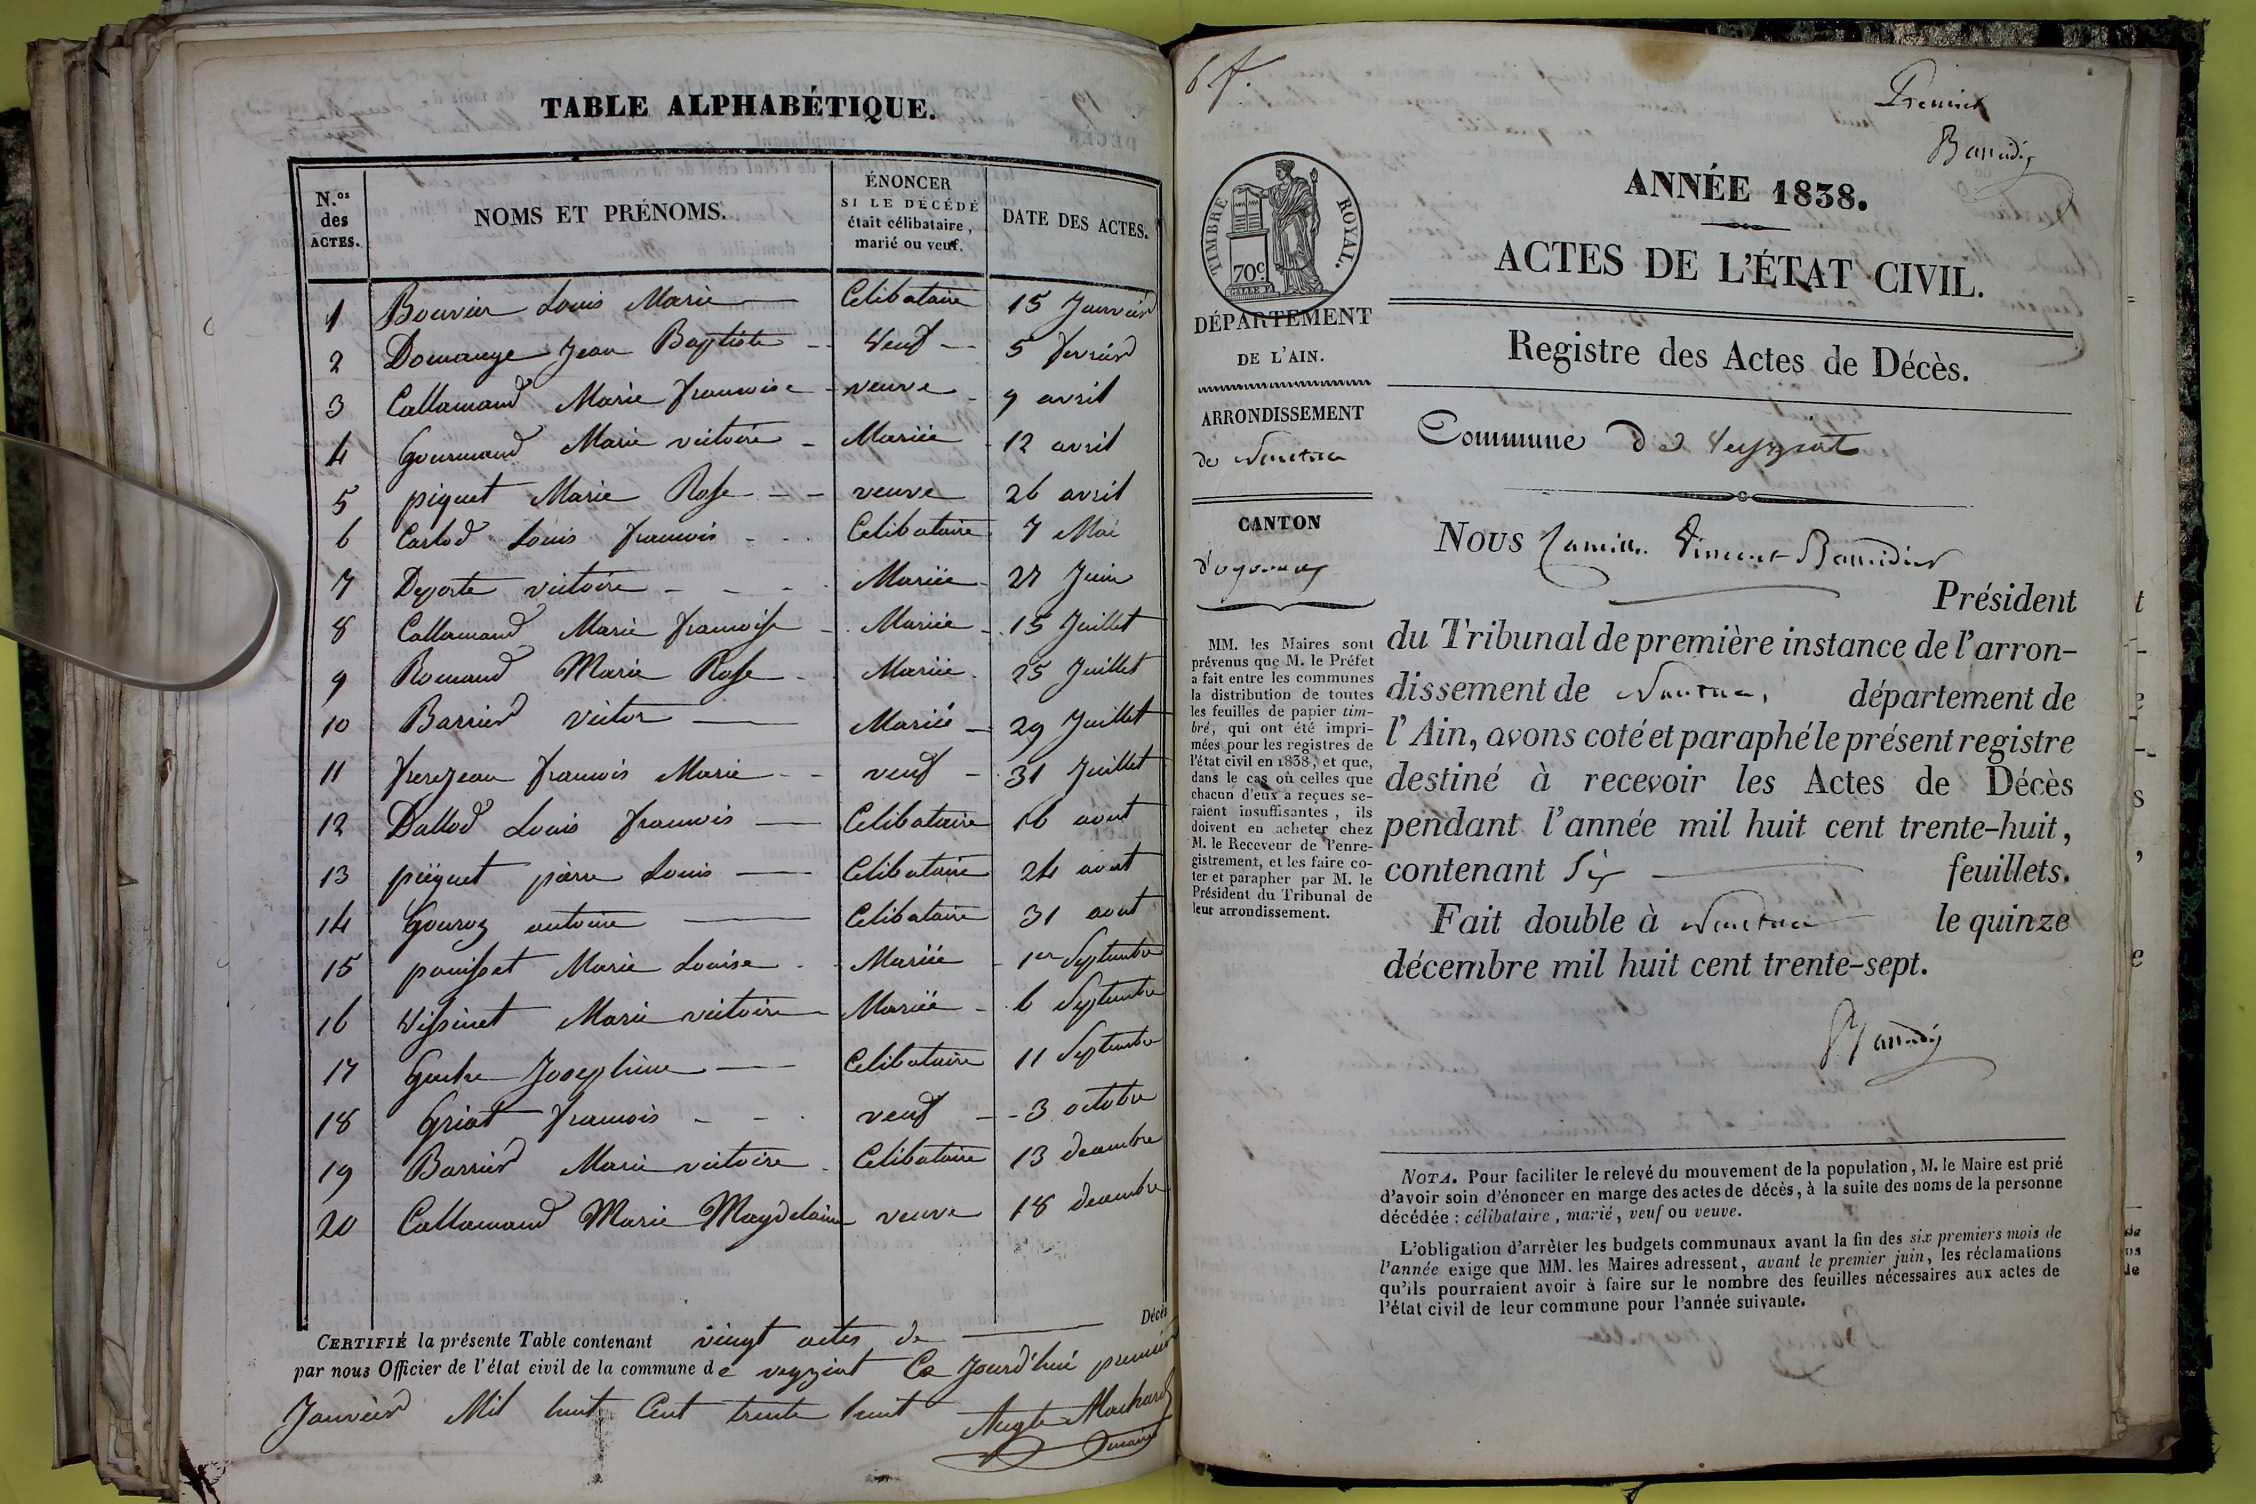 TABLE ALPHABÉTIQUE.
N.os des ACTES.
NOMS ET PRÉNOMS.
ÉNONCER
SI LE DÉCÉDÉ
était célibataire,
marié ou veuf.
DATE DES ACTES.
1 Bouvier Louis Marie Celibataire 15 Janvier
2 Domange Jean Baptiste Veuf 5 fevrier
3 Callamand Marie francoise veuve 9 avril
4 Gourmand Marie victoire Mariée 12 avril
5 piquet Marie Rose veuve 26 avril
6 Carlod Louis francois Celibataire 7 Mai
7 Deporte victoire Mariée 27 Juin
8 Callamand Marie francoise Mariée 15 Juillet
9 Romand Marie Rose Mariée 25 Juillet
10 Barrier victor Marié 29 Juillet
11 frerejean francois Marie veuf 31 Juillet
12 Dallod Louis francois Celibataire 16 aout
13 piquet pierre Louis Celibataire 24 aout
14 Gouroz antoine Celibataire 31 aout
15 pouisset Marie Louise Mariée 1er Septembre
16 Vissinet Marie victoire Mariée 6 Septembre
17 Josephine Celibataire 11 Septembre
18 Griot francois veuf 3 octobre
19 Barrier Marie victoire Celibataire 13 decembre
20 Callamand Marie Magdelaine veuve 18 decembre
CERTIFIÉ la présente Table contenant vingt actes de Décès
par nous Officier de l'état civil de la commune de veyziat Ce Jourd'hui premier
Janvier Mil huit Cent trente huit
Premier
ANNÉE 1838.
TIMBRE ROYAL.
70c.
ACTES DE L'ÉTAT CIVIL.
DÉPARTEMENT
DE L'AIN.
Registre des Actes de Décès.
ARRONDISSEMENT
de Nantua
Commune de Veyziat
CANTON
d'oyonnax
Nous Camille Vincent Baudidier
Président
du Tribunal de première instance de l'arron-
dissement de Nantua, département de
l'Ain, avons coté et paraphé le présent registre
destiné à recevoir les Actes de Décès
pendant l'année mil huit cent trente-huit,
contenant Six feuillets.
Fait double à Nantua le quinze
décembre mil huit cent trente-sept.
MM. les Maires sont
prévenus que M. le Préfet
a fait entre les communes
la distribution de toutes
les feuilles de papier tim-
bré, qui ont été impri-
mées pour les registres de
l'état civil en 1838, et que,
dans le cas où celles que
chacun d'eux a reçues se-
raient insuffisantes, ils
doivent en acheter chez
M. le Receveur de l'enre-
gistrement, et les faire co-
ter et parapher par M. le
Président du Tribunal de
leur arrondissement.
NOTA. Pour faciliter le relevé du mouvement de la population, M. le Maire est prié
d'avoir soin d'énoncer en marge des actes de décès, à la suite des noms de la personne
décédée : célibataire, marié, veuf ou veuve.
L'obligation d'arrêter les budgets communaux avant la fin des six premiers mois de
l'année exige que MM. les Maires adressent, avant le premier juin, les réclamations
qu'ils pourraient avoir à faire sur le nombre des feuilles nécessaires aux actes de
l'état civil de leur commune pour l'année suivante.